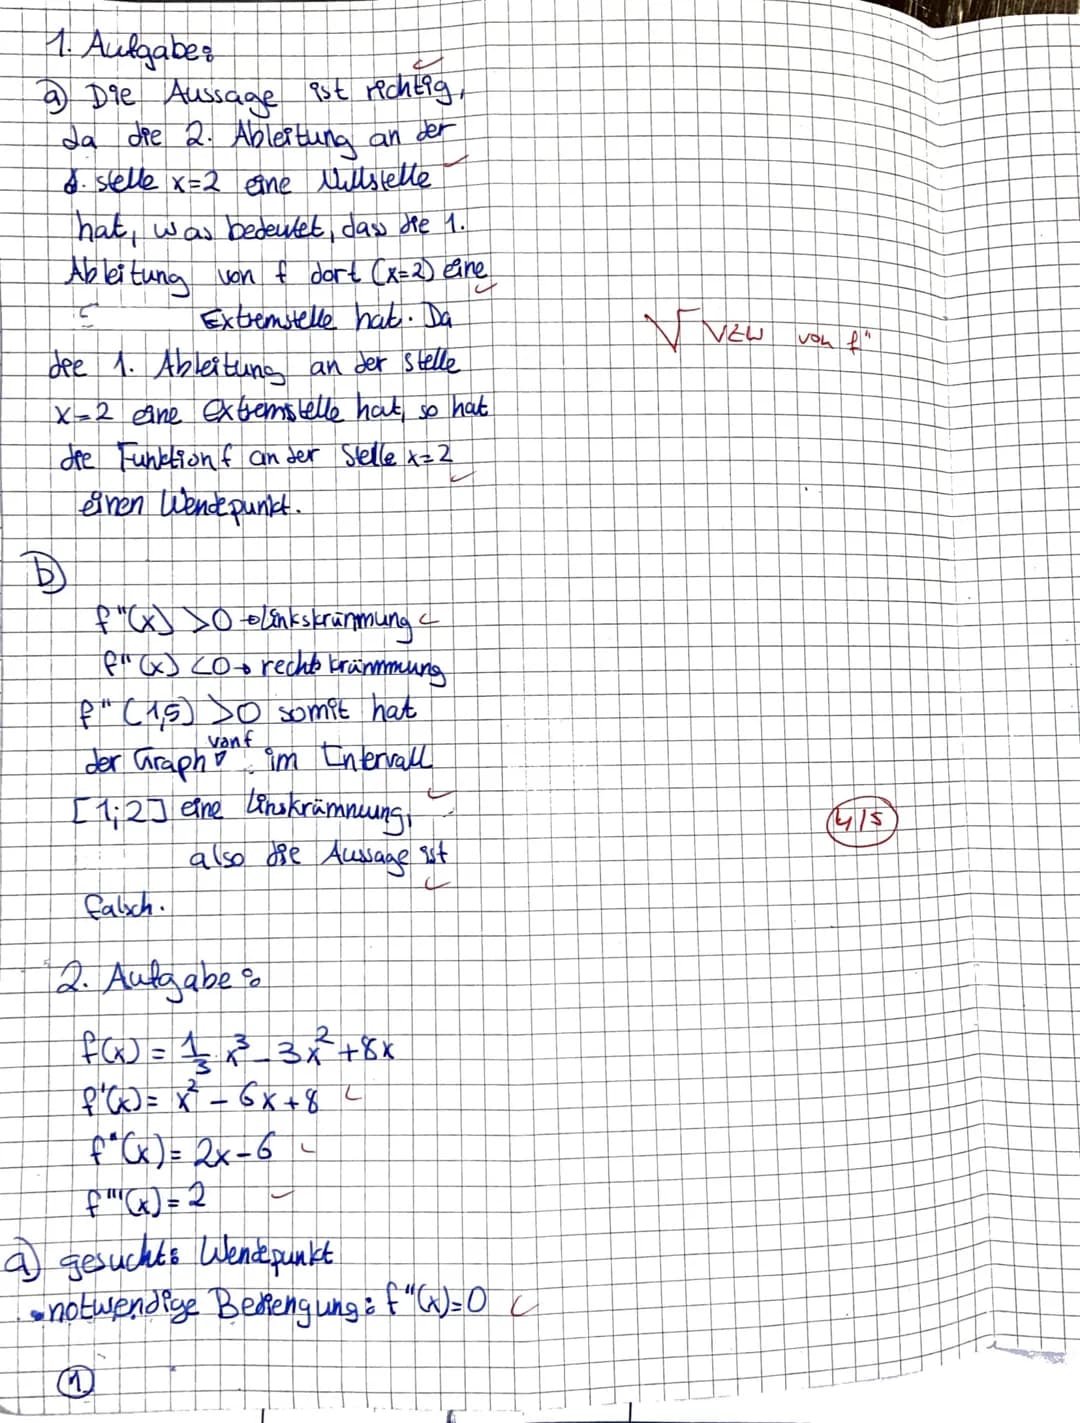 1. Aufgabe:
a) Die Aussage ist richtig,
da die 2. Ableitung an der
stelle x=2 eine Nullstelle
hat, was bedeutet, dass die 1.
Ableitung von f dort (x=2) eine
Extremstelle hat. Da
die 1. Ableitung an der stelle
x=2 eine Extremstelle hat, so hat
die Funktion f an der Stelle x=2
einen Wendepunkt.
√ VZW von f"
b)
f"(x) >0 → linkskrümmung
f"(x) <0 → rechtskrümmung
f"(1,5) >0 somit hat
der Graph von f im Intervall
[1;2] eine Linskrümmung,
also die Aussage ist
falsch.
4/5
2. Aufgabe:
f(x) = 1/3 x³ - 3x² + 8x
f'(x) = x² - 6x + 8
f"(x) = 2x - 6
f'''(x) = 2
a) gesucht: Wendepunkt
• notwendige Bediengung: f"(x)=0
1